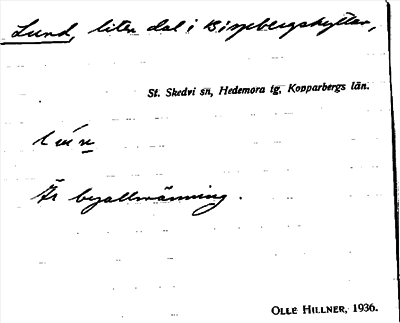 Lund, liten dal i Bispbergshyttan,
St. Skedvi sn, Hedemora tg, Kopparbergs län.
Är
OLLE HILLNER, 1936.